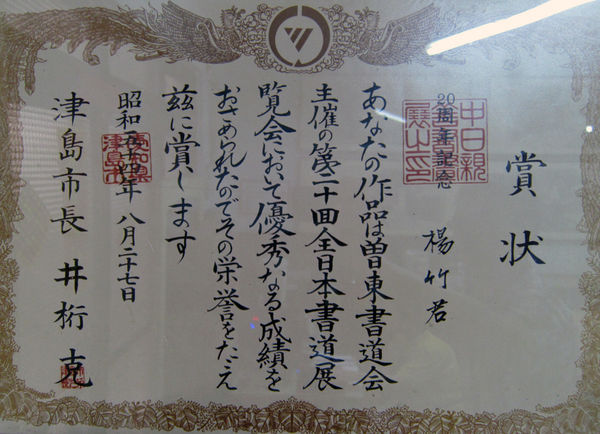 賞状
20周年記念
楊竹君
あなたの作品は曽東書道会
主催の第二十回全日本書道展
覧会において優秀なる成績を
おさめられたのでその栄誉をたえ
茲に賞します
昭和五十四年八月二十七日
津島市長 井桁克
愛知県
津島市